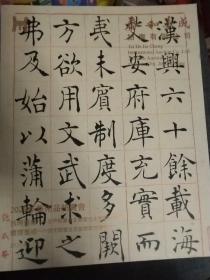 漢興六十餘載海
艾安府庫充實而
夷未賓制度多闕
方欲用文武求之
弗及始以蒲輪迎